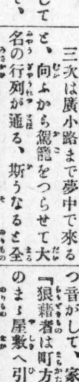 して
三次は廣小路まで夢中で來る
と、向ふから駕籠をつらせて大
名の行列が通る、斯うなると全
つ音がして
『狼藉者は町方
のまゝ屋敷へ引